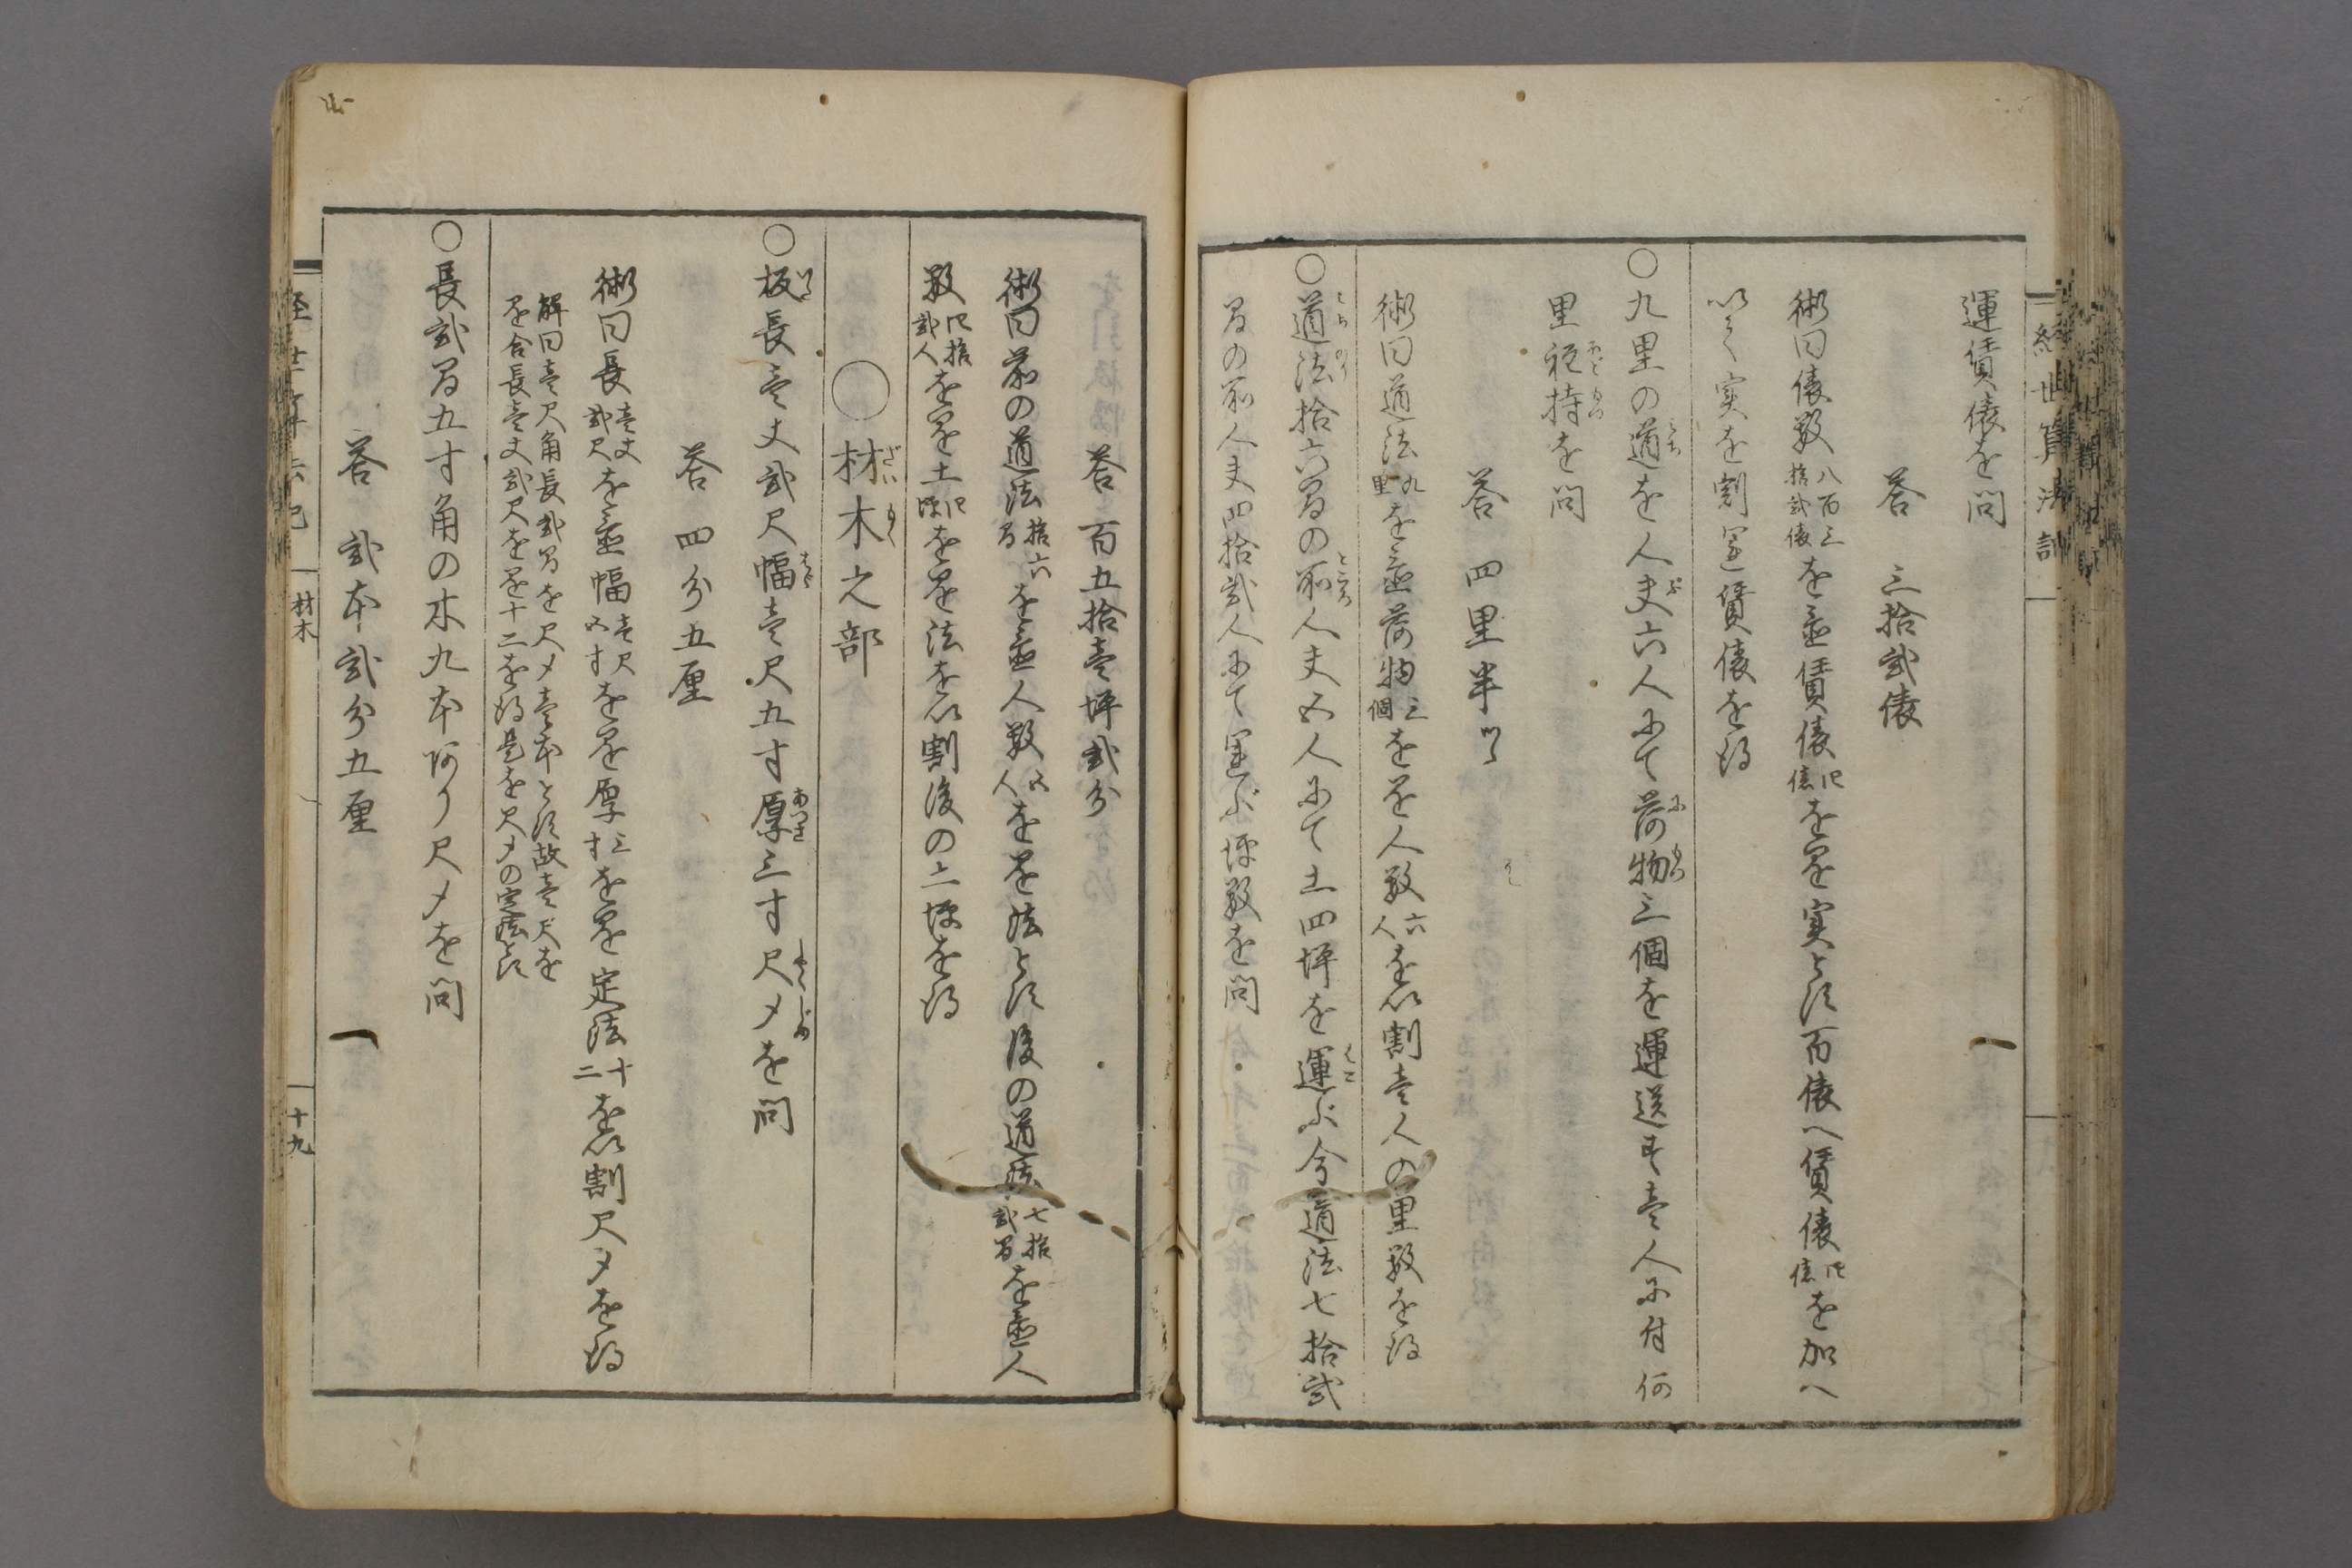 運賃俵を問
答 三拾弐俵
術曰俵数八百三拾弐俵を置賃俵四俵を因を実とす百俵へ賃俵四俵を加へ
以て実を割運賃俵を得
○九里の道を人夫六人にて荷物三個を運送す壱人に付何
里宛持を問
答 四里半ツヽ
術曰道法九里を置荷物三個を因を人数六人を以割壱人の里数を得
○道法拾六間の所人夫五人にて土四坪を運ぶ今道法七拾弐
間の所人夫四拾弐人にて運ぶ坪数を問
経世算法記
答 百五拾壱坪弐分
術曰前の道法拾六間を置人数五人を因を法とす後の道法七拾弐間を置人
数四拾弐人を因を土四坪を因を法を以割後の土坪を得
○材木之部
○板長壱丈弐尺幅壱尺五寸厚三寸尺〆を問
答 四分五厘
術曰長壱丈弐尺を置幅壱尺五寸を因を厚三寸を因を定法十二を以割尺〆を得
解曰壱尺角長弐間を尺〆壱本とす故壱尺を
因を合長壱丈弐尺を因を十二を得是を尺〆の定法とす
○長弐間五寸角の木九本阿り尺〆を問
答 弐本弐分五厘
材木
十九